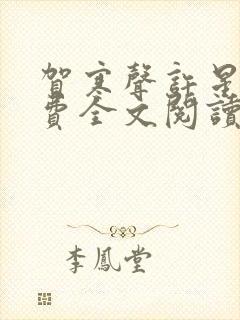 賀寒聲許星
費全文閱讀
李鳳堂